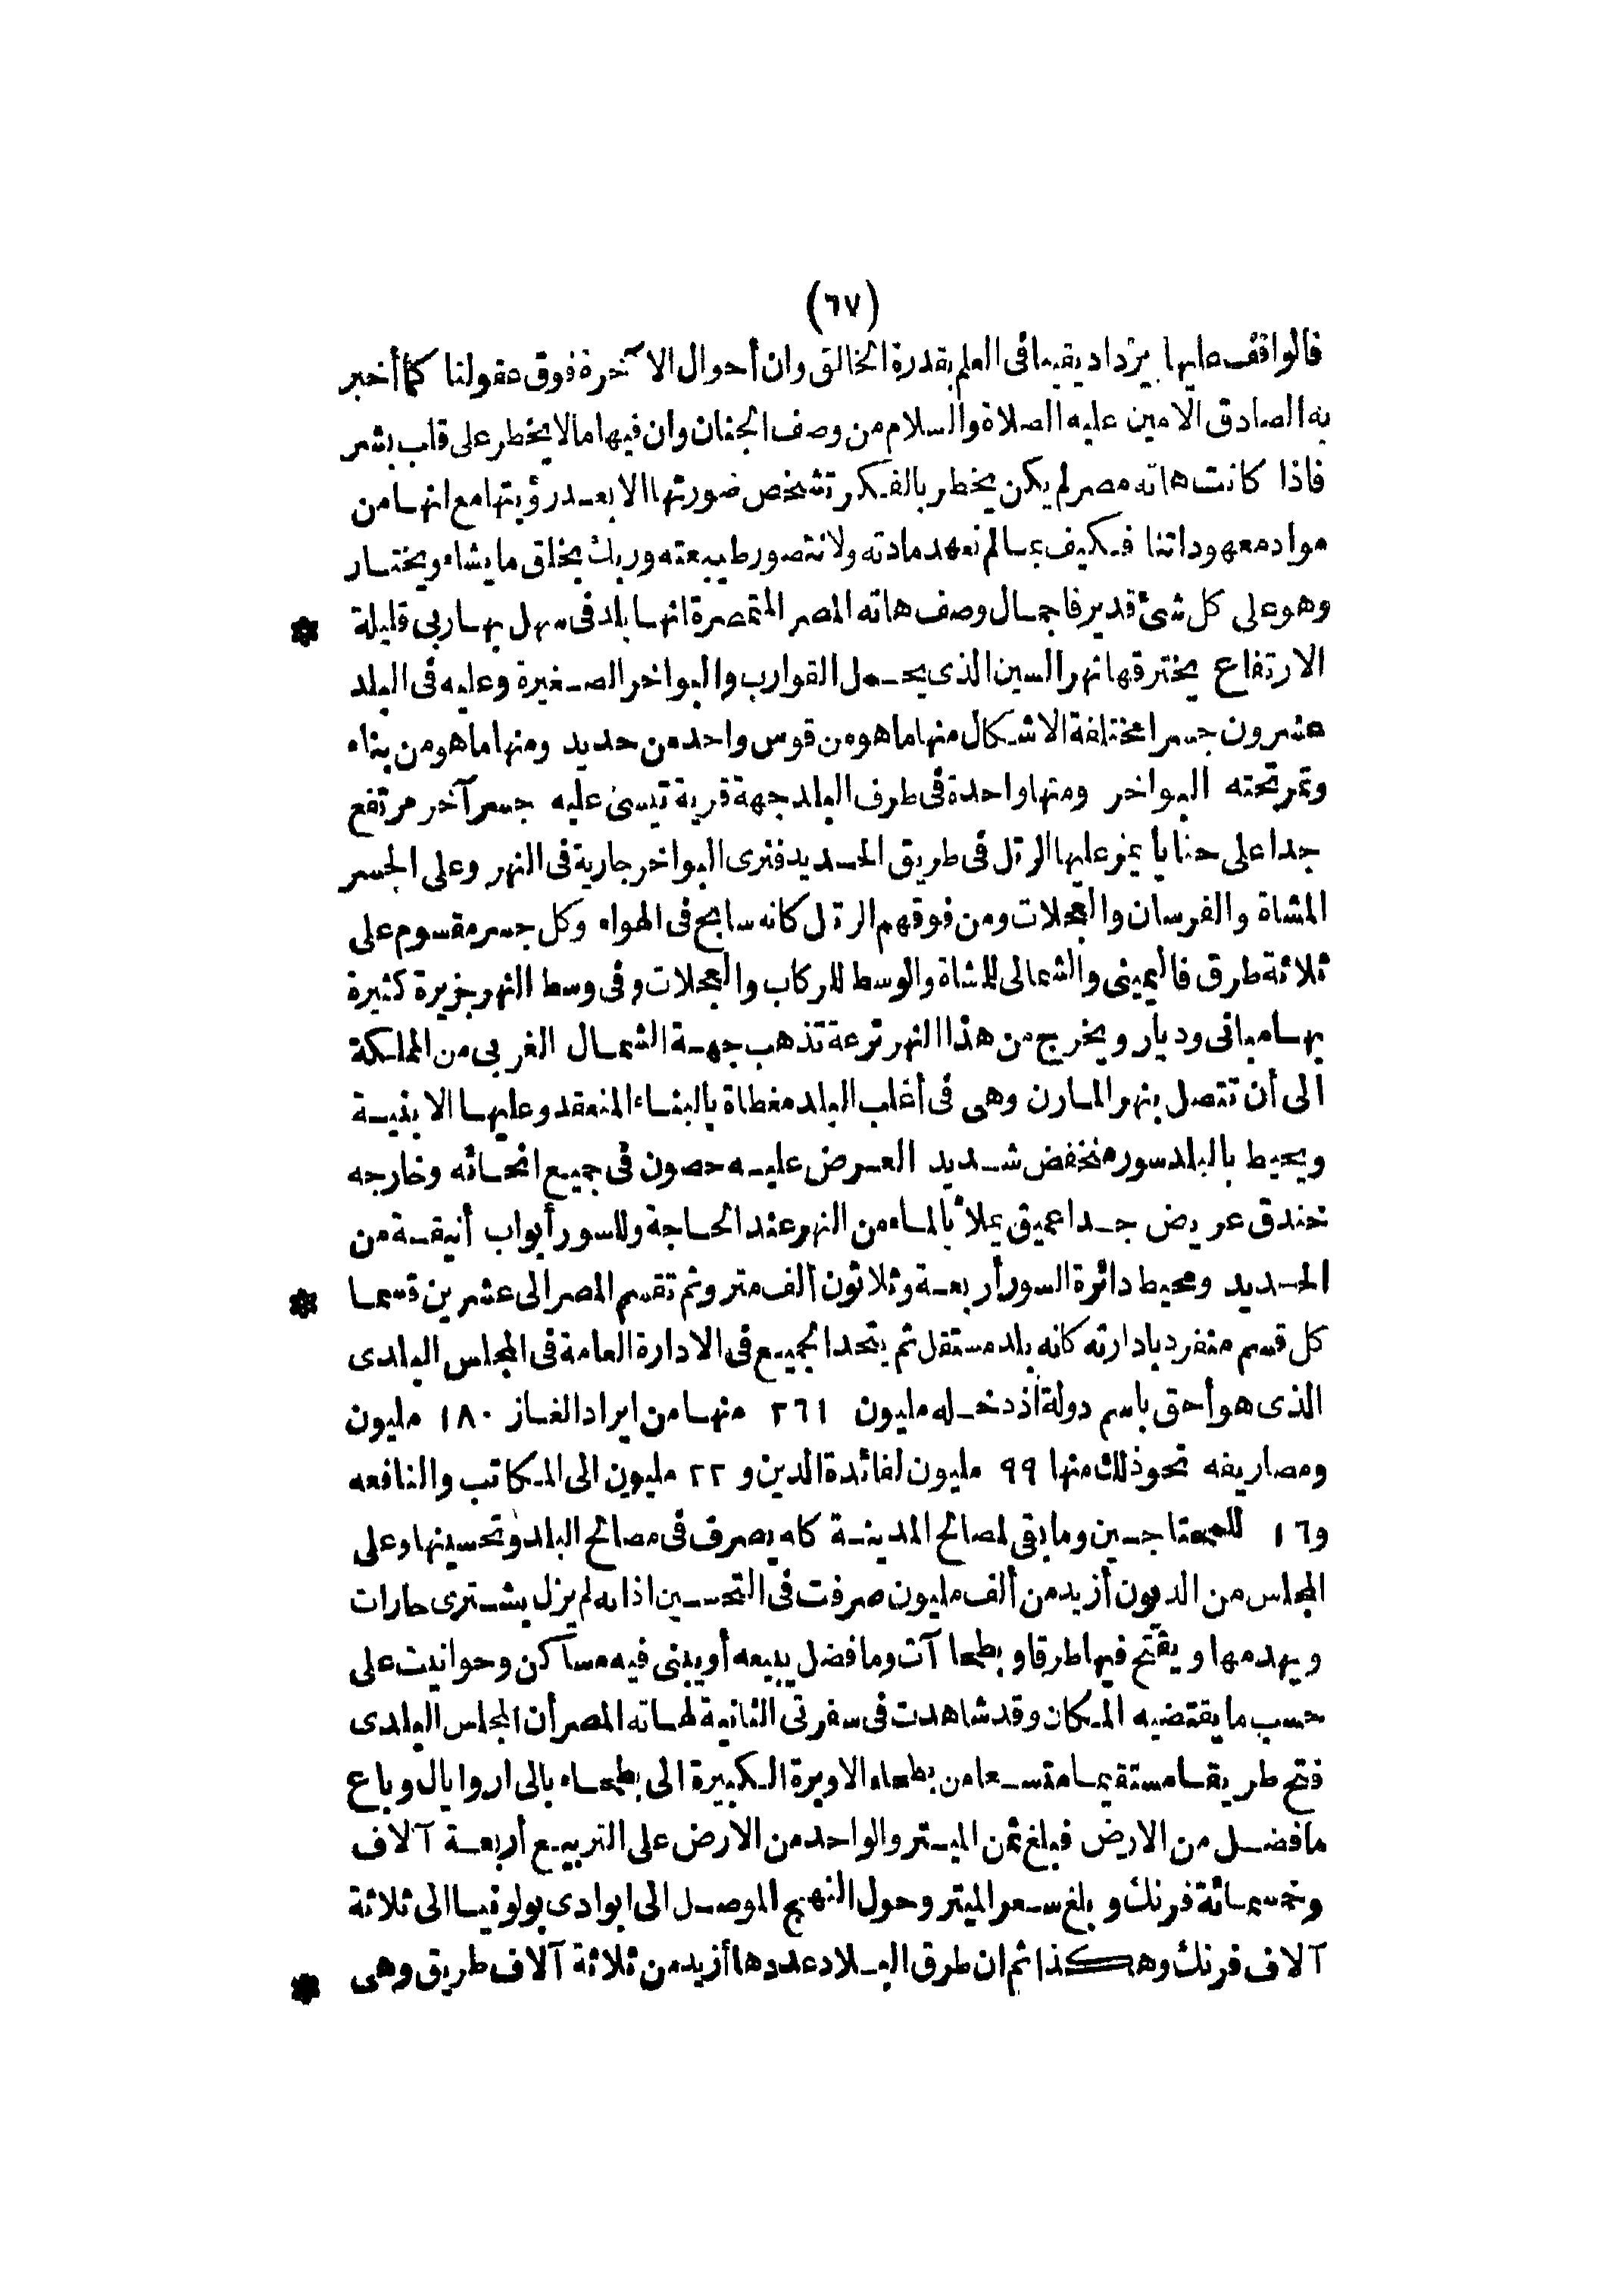 (٦٧)
فالواقف عليها يزداد يقينا فى العلم بقدرة الخالق وان أحوال الآخرة فوق عقولنا كما أخبر
به الصادق الامين عليه الصلاة والسلام من وصف الجنان وان فيها ما لا يخطر على قلب بشر
فاذا كانت هاته مصر لم يكن يخطر بالفكر تشخص صورتها الا بعد رؤيتها مع انها من
مواد معهوداتنا فكيف بما لم نعهد مادته ولا نتصور طبيعته وربك يخلق ما يشاء ويختار
وهو على كل شئ قدير فاجمال وصف هاته المصر المتمصرة انها بلد فى سهل بها ربى قليلة *
الارتفاع يخترقها نهر السين الذى يحمل القوارب والبواخر الصغيرة وعليه فى البلد
عشرون جسرا مختلفة الاشكال منها ما هو من قوس واحد من حديد ومنها ما هو من بناء
وتمر تحته البواخر ومنها واحدة فى طرف البلد جهة قرية تيسى عليه جسر آخر مرتفع
جدا على حنايا يمر عليها الرتل فى طريق الحديد فترى البواخر جارية فى النهر وعلى الجسر
المشاة والفرسان والعجلات ومن فوقهم الرتل كانه سابح فى الهواء وكل جسر مقسوم على
ثلاثة طرق فاليمينى والشمالى للمشاة والوسط للركاب والعجلات وفى وسط النهر جزيرة كثيرة
بها مبانى وديار ويخرج من هذا النهر ترعة تذهب جهة الشمال الغربى من المملكة
الى أن تتصل بنهر المارن وهى فى أغلب البلد مغطاة بالبناء المنعقد وعليها الابنية
ويحيط بالبلد سور منخفض شديد العرض عليه حصون فى جميع انحائه وخارجه
خندق عريض جدا عميق يملأ بالماء من النهر عند الحاجة وللسور أبواب أنيقة من
الحديد ومحيط دائرة السور أربعة وثلاثون ألف متر وثم تقسم المصر الى عشرين قسما *
كل قسم منفرد بادارته كانه بلد مستقل ثم يتحد الجميع فى الادارة العامة فى المجلس البلدى
الذى هو أحق باسم دولة اذ دخله مليون ٢٦١ منها من ايراد الغاز ١٨٠ مليون
ومصاريفه نحو ذلك منها ٩٩ مليون لفائدة الدين و ٢٢ مليون الى المكاتب والنافعه
و١٦ للمحتاجين وما بقى لمصالح المدينة كله يصرف فى مصالح البلد وتحسينها وعلى
المجلس من الديون أزيد من ألف مليون صرفت فى التحسين اذ انه لم يزل يشترى حارات
ويهدمها ويفتح فيها طرقا وبطحاآت وما فضل يبيعه أو يبنى فيه مساكن وحوانيت على
حسب ما يقتضيه المكان وقد شاهدت فى سفرتى الثانية لهاته المصر أن المجلس البلدى
فتح طريقا مستقيما متسعا من بطحاء الاوبرة الكبيرة الى بطحاء بالى اروايال وباع
ما فضل من الارض فبلغ ثمن الميترو الواحد من الارض على التربيع أربعة آلاف
وخمسمائة فرنك وبلغ سعر الميترو حول النهج الموصل الى ابوادى بولونيا الى ثلاثة
آلاف فرنك وهكذا ثم ان طرق البلاد عددها أزيد من ثلاثة آلاف طريق وهى *